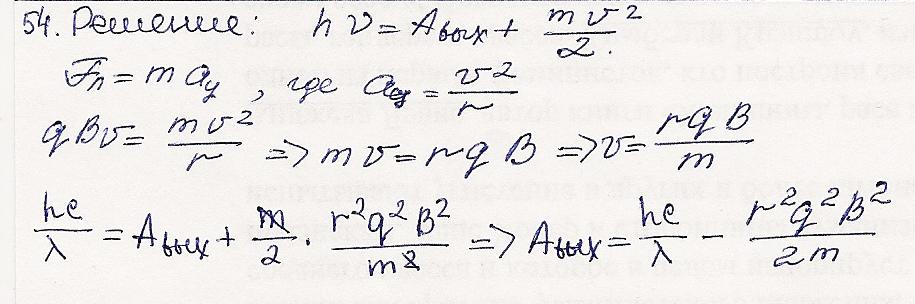 54. Решение: hν = Aвых + mv²/2.
Fл = m aц, где aц = v²/r
qBv = mv²/r => mv = rqB => v = rqB/m
hc/λ = Aвых + m/2 · r²q²B²/m² => Aвых = hc/λ - r²q²B²/2m